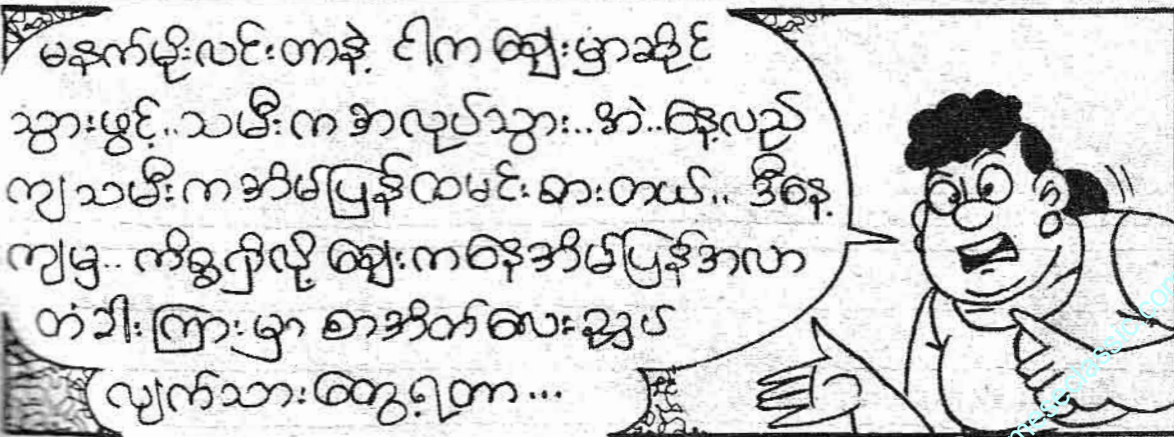 မနက်မိုးလင်းတာနဲ့ ငါက ဈေးမှာဆိုင်
သွားဖွင့်..သမီးက အလုပ်သွား..အဲ..နေ့လည်
ကျ သမီးက အိမ်ပြန် ထမင်းစားတယ်.. ဒီနေ့
ကျမှ.. ကိစ္စရှိလို့ ဈေးကနေ အိမ်ပြန်အလာ
တံခါးကြားမှာ စာအိတ်လေးညှပ်
လျက်သားတွေ့ရတာ...